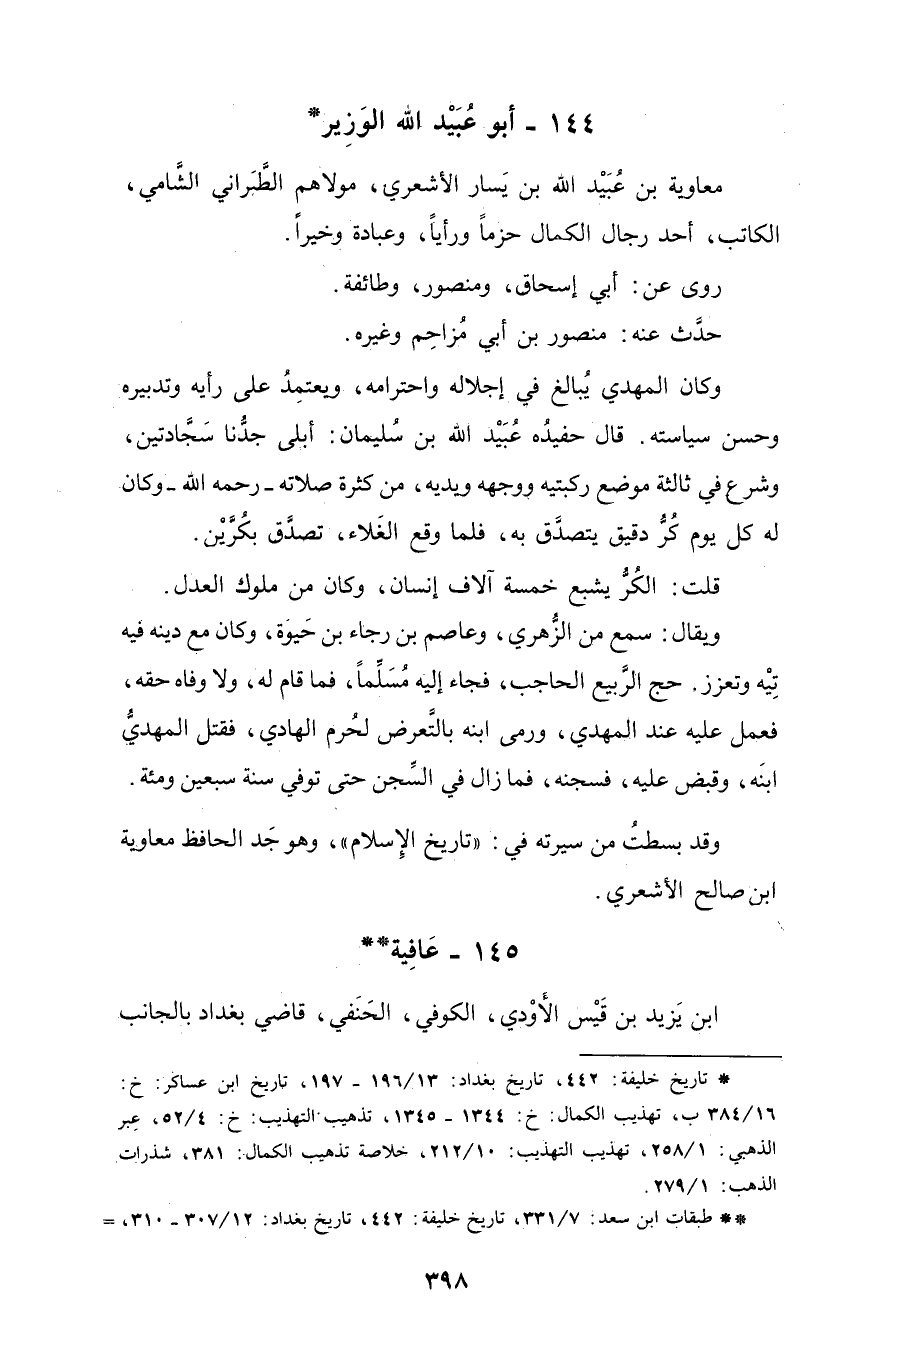 ١٤٤ - أبو عُبَيْد الله الوَزِير*
معاوية بن عُبَيْد الله بن يَسار الأشعري، مولاهم الطَّبَراني الشَّامي،
الكاتب، أحد رجال الكمال حزماً ورأياً، وعبادة وخيراً.
روى عن: أبي إسحاق، ومنصور، وطائفة.
حدَّث عنه: منصور بن أبي مُزاحِم وغيره.
وكان المهدي يُبالغ في إجلاله واحترامه، ويعتمِدُ على رأيه وتدبيره
وحسن سياسته. قال حفيدُه عُبَيْد الله بن سُليمان: أبلى جدُّنا سَجَّادتين،
وشرع في ثالثة موضع ركبتيه ووجهه ويديه، من كثرة صلاته - رحمه الله - وكان
له كل يوم كُرُّ دقيق يتصدَّق به، فلما وقع الغَلاء، تصدَّق بكُرَّيْن.
قلت: الكُرُّ يشبع خمسة آلاف إنسان، وكان من ملوك العدل.
ويقال: سمع من الزُّهري، وعاصم بن رجاء بن حَيوَة، وكان مع دينه فيه
تِيْه وتعزز. حج الرَّبيع الحاجب، فجاء إليه مُسَلِّماً، فما قام له، ولا وفاه حقه،
فعمل عليه عند المهدي، ورمى ابنه بالتَّعرض لحُرم الهادي، فقتل المهديُّ
ابنَه، وقبض عليه، فسجنه، فما زال في السِّجن حتى توفي سنة سبعين ومئة.
وقد بسطتُ من سيرته في: «تاريخ الإِسلام»، وهو جَد الحافظ معاوية
ابن صالح الأشعري.
١٤٥ - عَافِية**
ابن يَزيد بن قَيْس الأَوْدي، الكوفي، الحَنَفي، قاضي بغداد بالجانب
* تاريخ خليفة: ٤٤٢، تاريخ بغداد: ١٩٦/١٣ - ١٩٧، تاريخ ابن عساكر: خ:
٣٨٤/١٦ ب، تهذيب الكمال: خ: ١٣٤٤ - ١٣٤٥، تذهيب التهذيب: خ: ٥٢/٤، عبر
الذهبي: ٢٥٨/١، تهذيب التهذيب: ٢١٢/١٠، خلاصة تذهيب الكمال: ٣٨١، شذرات
الذهب: ٢٧٩/١.
** طبقات ابن سعد: ٣٣١/٧، تاريخ خليفة: ٤٤٢، تاريخ بغداد: ٣٠٧/١٢ - ٣١٠، =
٣٩٨